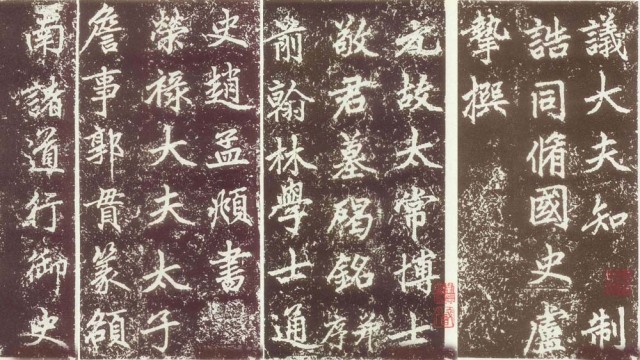 議大夫知制
誥同脩國史盧
摯撰
元故太常博士
敬君墓碣銘并序
前翰林學士通
史趙孟頫書
榮祿大夫太子
詹事郭貫篆額
南諸道行御史